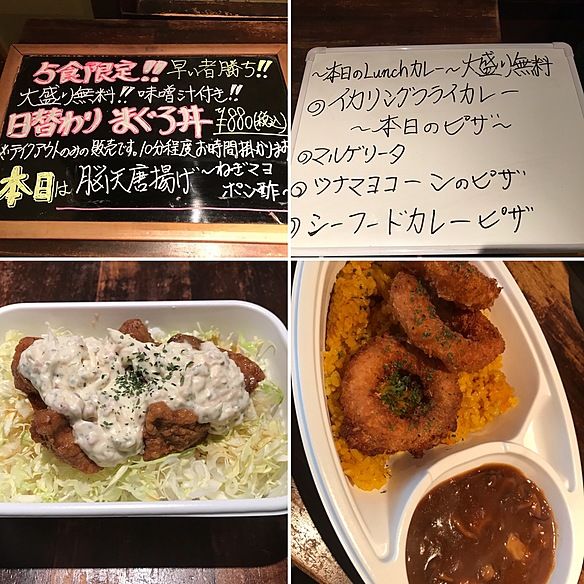 5食限定!! 早い者勝ち!!
大盛り無料!! 味噌汁付き!!
日替わり まぐろ丼 ¥880(税込)
※テイクアウトのみの販売です。10分程度お時間掛かります
本日は 脳天唐揚げ ～ねぎマヨ
ポン酢～
～本日のLunchカレー～大盛り無料
◎イカリングフライカレー
～本日のピザ～
◎マルゲリータ
◎ツナマヨコーンのピザ
◎シーフードカレーピザ